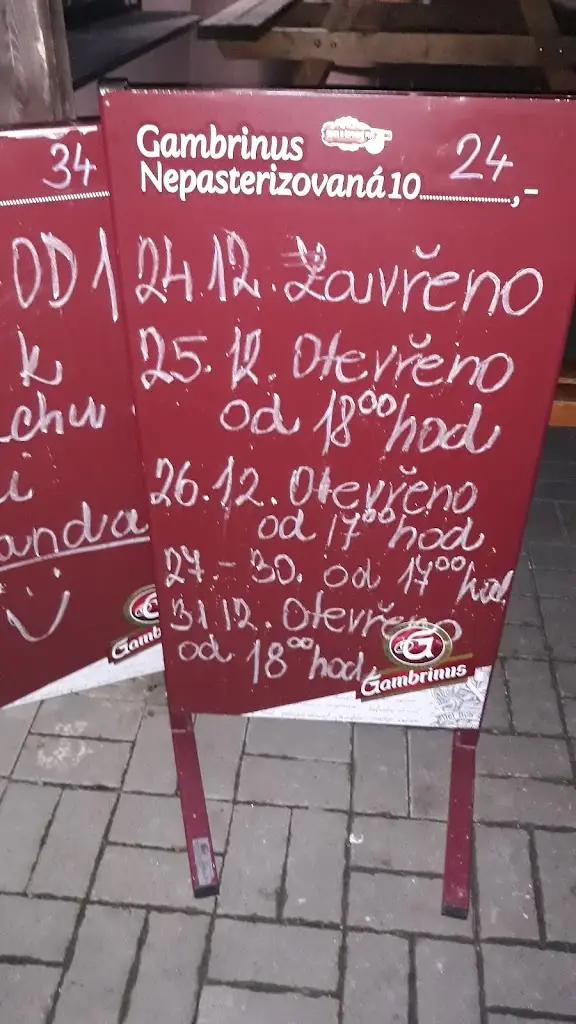 34
OD 1
k
chu
i
anda
Gambrinus
Gambrinus
Nepasterizovaná 10 24,-
24.12. Zavřeno
25.12. Otevřeno
od 18⁰⁰ hod
26.12. Otevřeno
od 17⁰⁰ hod.
27.-30. od 17⁰⁰ hod
31.12. Otevřeno
od 18⁰⁰ hod.
G
Gambrinus